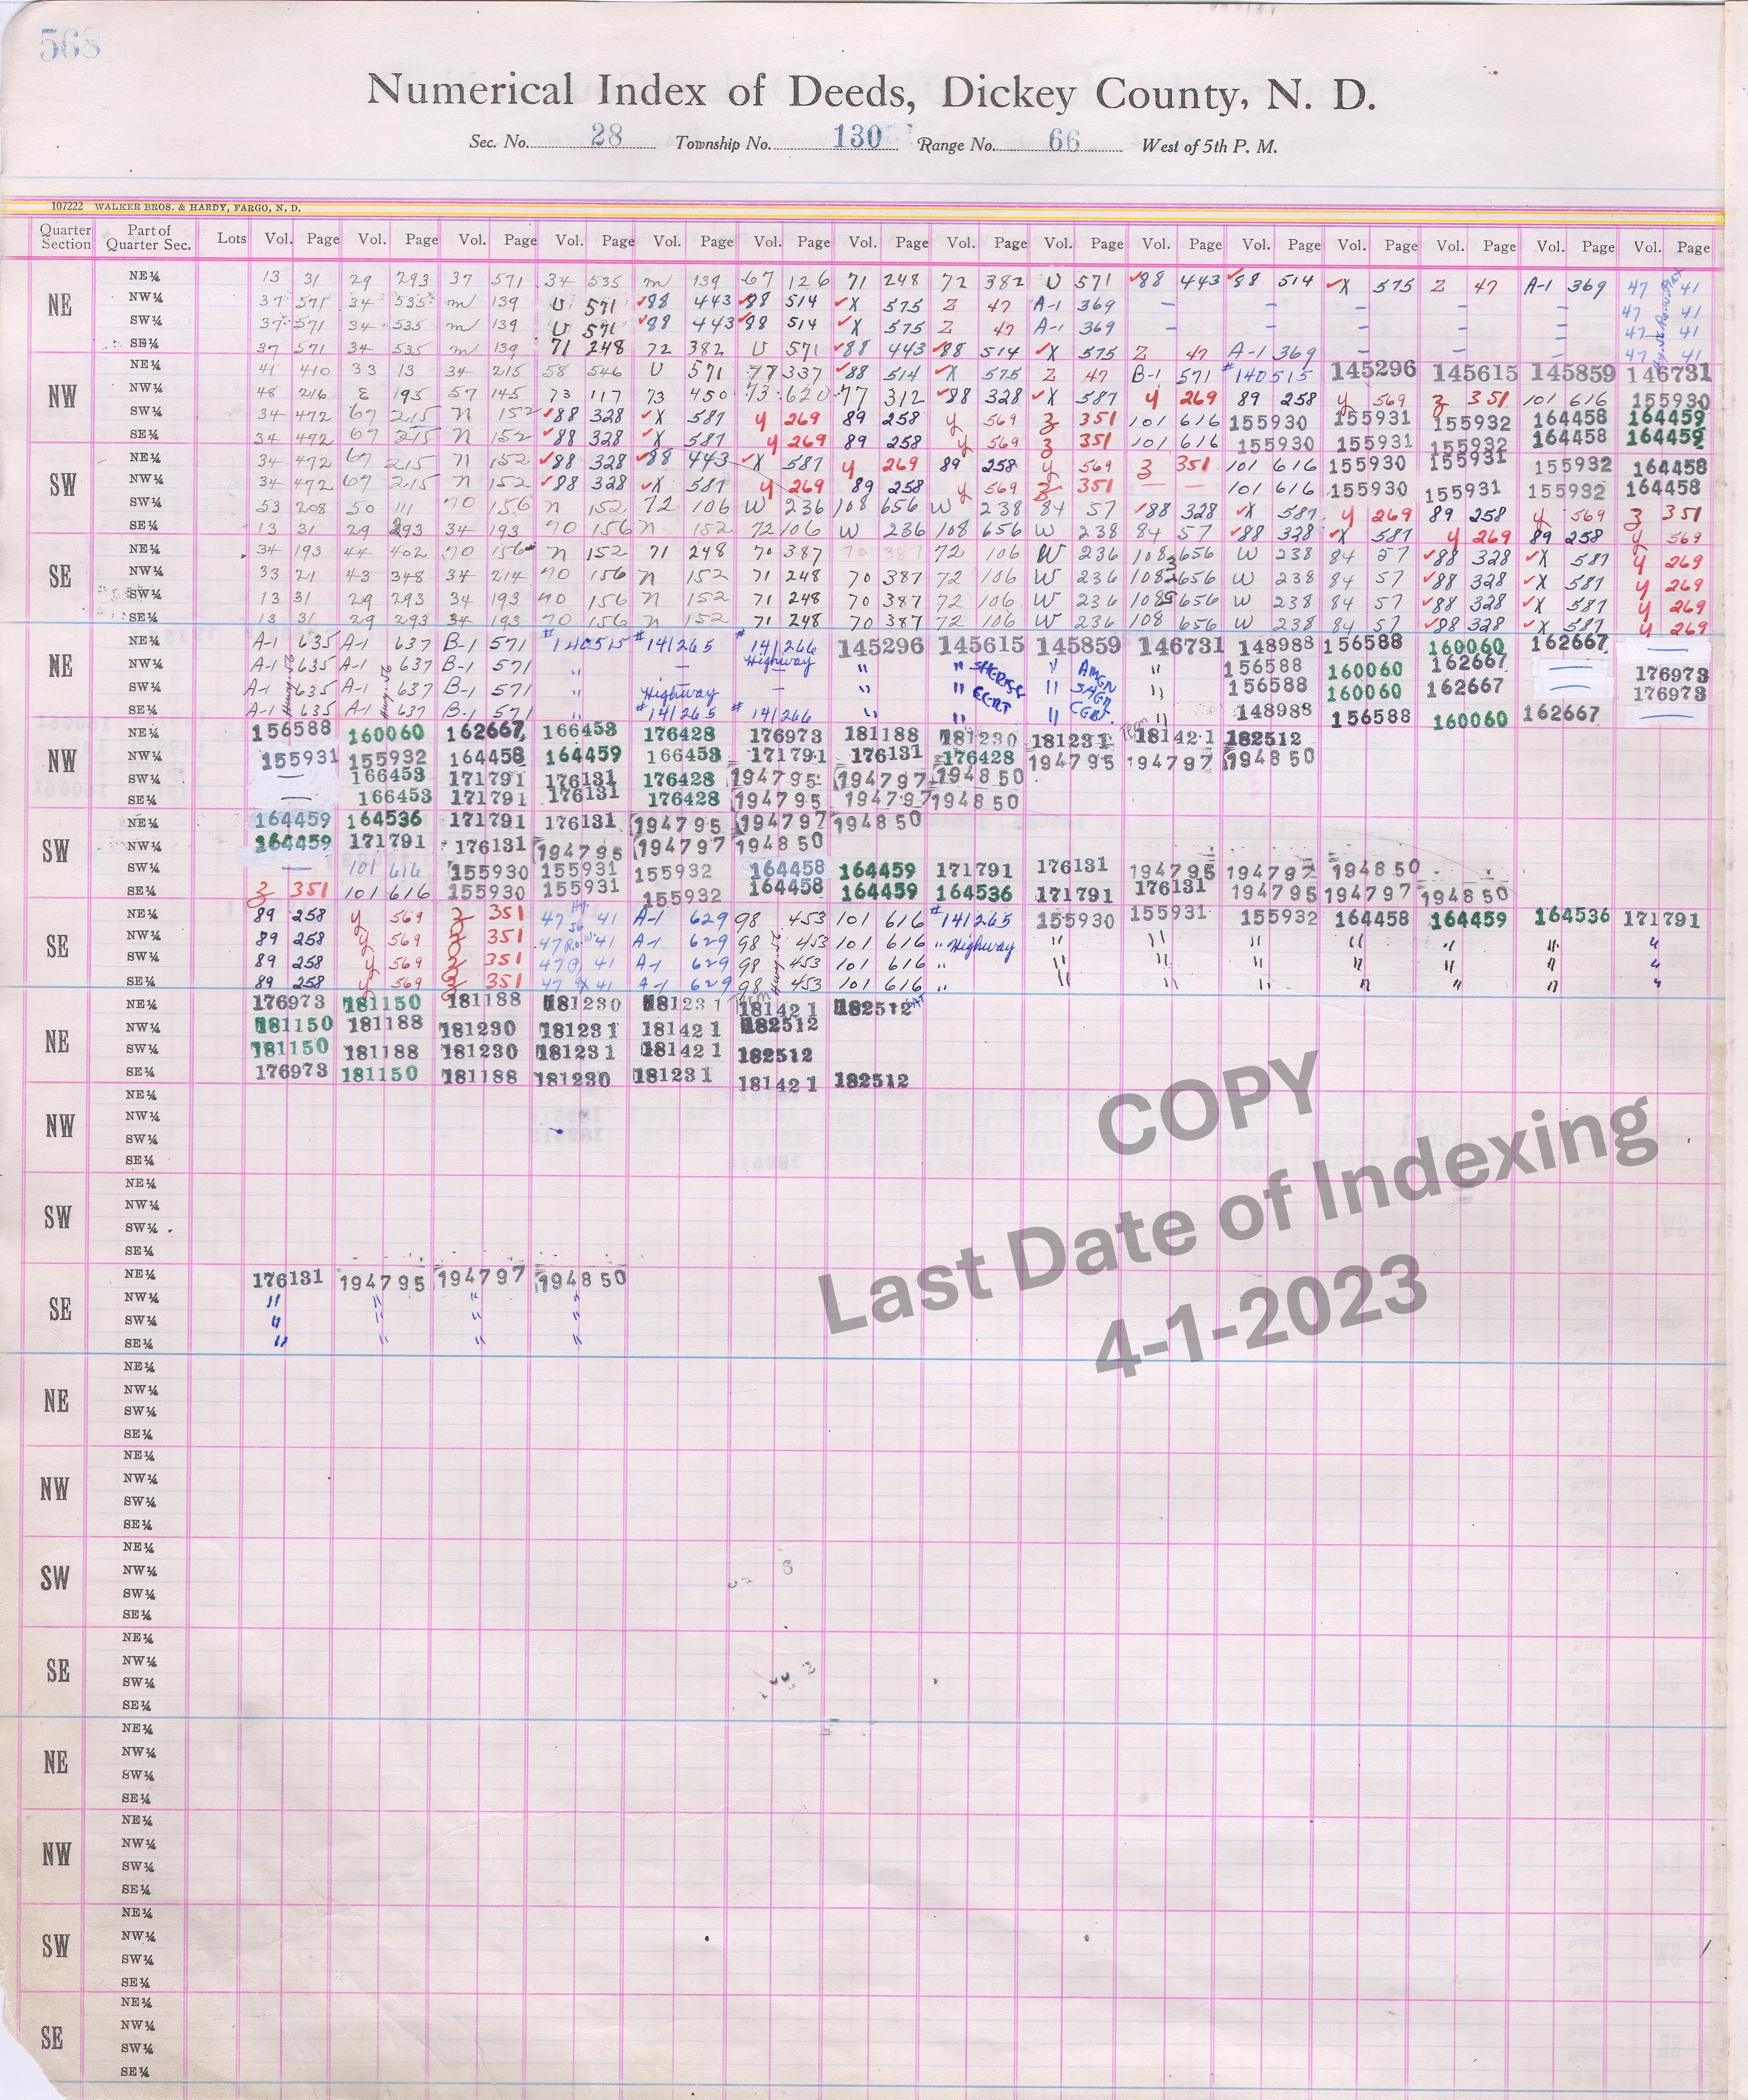 568
Numerical Index of Deeds, Dickey County, N. D.
Sec. No. 28 Township No. 130 Range No. 66 West of 5th P. M.
107222 WALKER BROS. & HARDY, FARGO, N. D.
Quarter Section Part of Quarter Sec. Lots Vol. Page Vol. Page Vol. Page Vol. Page Vol. Page Vol. Page Vol. Page Vol. Page Vol. Page Vol. Page Vol. Page Vol. Page Vol. Page Vol. Page Vol. Page
NE
NE¼ 13 31 29 293 37 571 34 535 m 139 67 126 71 248 72 382 U 571 ✓88 443 ✓88 514 ✓X 575 Z 47 A-1 369 47 41
NW¼ 37 571 34 535 m 139 U 571 ✓88 443 ✓88 514 ✓X 575 Z 47 A-1 369 – – – – – 47 41
SW¼ 37 571 34 535 m 139 U 571 ✓88 443 ✓88 514 ✓X 575 Z 47 A-1 369 – – – – – 47 41
SE¼ 37 571 34 535 m 139 71 248 72 382 U 571 ✓88 443 ✓88 514 ✓X 575 Z 47 A-1 369 – – – 47 41
NW
NE¼ 41 410 33 13 34 215 58 546 U 571 77 337 ✓88 514 ✓X 575 Z 47 B-1 571 #140515 145296 145615 145859 146731
NW¼ 48 216 E 195 57 145 73 117 73 450 73 620 77 312 ✓88 328 ✓X 587 y 269 89 258 y 569 3 351 101 616 155930
SW¼ 34 472 67 215 n 152 ✓88 328 ✓X 587 y 269 89 258 y 569 3 351 101 616 155930 155931 155932 164458 164459
SE¼ 34 472 67 215 n 152 ✓88 328 ✓X 587 y 269 89 258 y 569 3 351 101 616 155930 155931 155932 164458 164459
SW
NE¼ 34 472 67 215 n 152 ✓88 328 ✓88 443 ✓X 587 y 269 89 258 y 569 3 351 101 616 155930 155931 155932 164458
NW¼ 34 472 67 215 n 152 ✓88 328 ✓X 587 y 269 89 258 y 569 3 351 — — 101 616 155930 155931 155932 164458
SW¼ 53 208 50 111 70 156 n 152 72 106 W 236 108 656 W 238 84 57 ✓88 328 ✓X 587 y 269 89 258 y 569 3 351
SE¼ 13 31 29 293 34 193 70 156 n 152 72 106 W 236 108 656 W 238 84 57 ✓88 328 ✓X 587 y 269 89 258 y 569
SE
NE¼ 34 193 44 402 70 156 n 152 71 248 70 387 70 387 72 106 W 236 108 656 W 238 84 57 ✓88 328 ✓X 587 y 269
NW¼ 33 21 43 348 34 214 70 156 n 152 71 248 70 387 72 106 W 236 108 656 W 238 84 57 ✓88 328 ✓X 587 y 269
SW¼ 13 31 29 293 34 193 70 156 n 152 71 248 70 387 72 106 W 236 108 656 W 238 84 57 ✓88 328 ✓X 587 y 269
SE¼ 13 31 29 293 34 193 70 156 n 152 71 248 70 387 72 106 W 236 108 656 W 238 84 57 ✓88 328 ✓X 587 y 269
NE
NE¼ A-1 635 A-1 637 B-1 571 #140515 #141265 #141266 145296 145615 145859 146731 148988 156588 160060 162667 —
NW¼ A-1 635 A-1 637 B-1 571 " — Highway " " SHERIFF " AMGN " 156588 160060 162667 — 176973
SW¼ A-1 635 A-1 637 B-1 571 " Highway — " " CERT " SHER " 156588 160060 162667 — 176973
SE¼ A-1 635 A-1 637 B-1 571 " #141265 #141266 " " " CERT. " 148988 156588 160060 162667 —
NW
NE¼ 156588 160060 162667 166453 176428 176973 181188 181230 181231 Term 181421 182512
NW¼ 155931 155932 164458 164459 166453 171791 176131 176428 194795 194797 194850
SW¼ — 166453 171791 176131 176428 194795 194797 194850
SE¼ — 166453 171791 176131 176428 194795 194797 194850
SW
NE¼ 164459 164536 171791 176131 194795 194797 194850
NW¼ 164459 171791 176131 194795 194797 194850
SW¼ — 101 616 155930 155931 155932 164458 164459 171791 176131 194795 194797 194850
SE¼ 3 351 101 616 155930 155931 155932 164458 164459 164536 171791 176131 194795 194797 194850
SE
NE¼ 89 258 y 569 3 351 47 41 A-1 629 98 453 101 616 #141265 155930 155931 155932 164458 164459 164536 171791
NW¼ 89 258 y 569 3 351 47 41 A-1 629 98 453 101 616 " Highway " " " " " " "
SW¼ 89 258 y 569 3 351 47 41 A-1 629 98 453 101 616 " " " " " " " "
SE¼ 89 258 y 569 3 351 47 41 A-1 629 98 453 101 616 " " " " " " " "
NE
NE¼ 176973 181150 181188 181230 181231 Term 181421 182512
NW¼ 181150 181188 181230 181231 181421 182512
SW¼ 181150 181188 181230 181231 181421 182512
SE¼ 176973 181150 181188 181230 181231 181421 182512
NW
NE¼
NW¼
SW¼
SE¼
SW
NE¼
NW¼
SW¼
SE¼
SE
NE¼ 176131 194795 194797 194850
NW¼ " " " "
SW¼ " " " "
SE¼ " " " "
NE
NE¼
NW¼
SW¼
SE¼
NW
NE¼
NW¼
SW¼
SE¼
SW
NE¼
NW¼
SW¼
SE¼
SE
NE¼
NW¼
SW¼
SE¼
NE
NE¼
NW¼
SW¼
SE¼
NW
NE¼
NW¼
SW¼
SE¼
SW
NE¼
NW¼
SW¼
SE¼
SE
NE¼
NW¼
SW¼
SE¼
COPY
Last Date of Indexing
4-1-2023